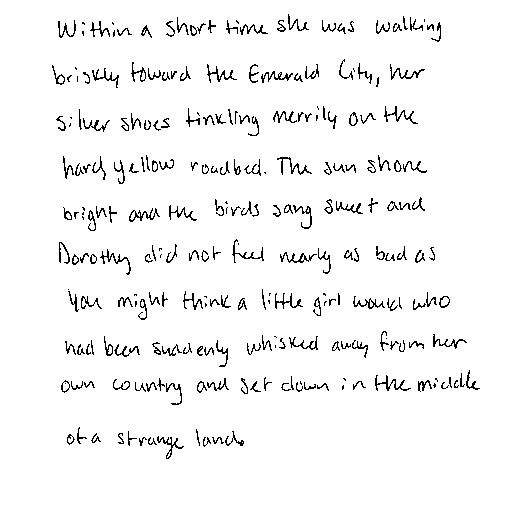 Within a short time she was walking
briskly toward the Emerald City, her
silver shoes tinkling merrily on the
hard, yellow roadbed. The sun shone
bright and the birds sang sweet and
Dorothy did not feel nearly as bad as
you might think a little girl would who
had been suddenly whisked away from her
own country and set down in the middle
of a strange land.